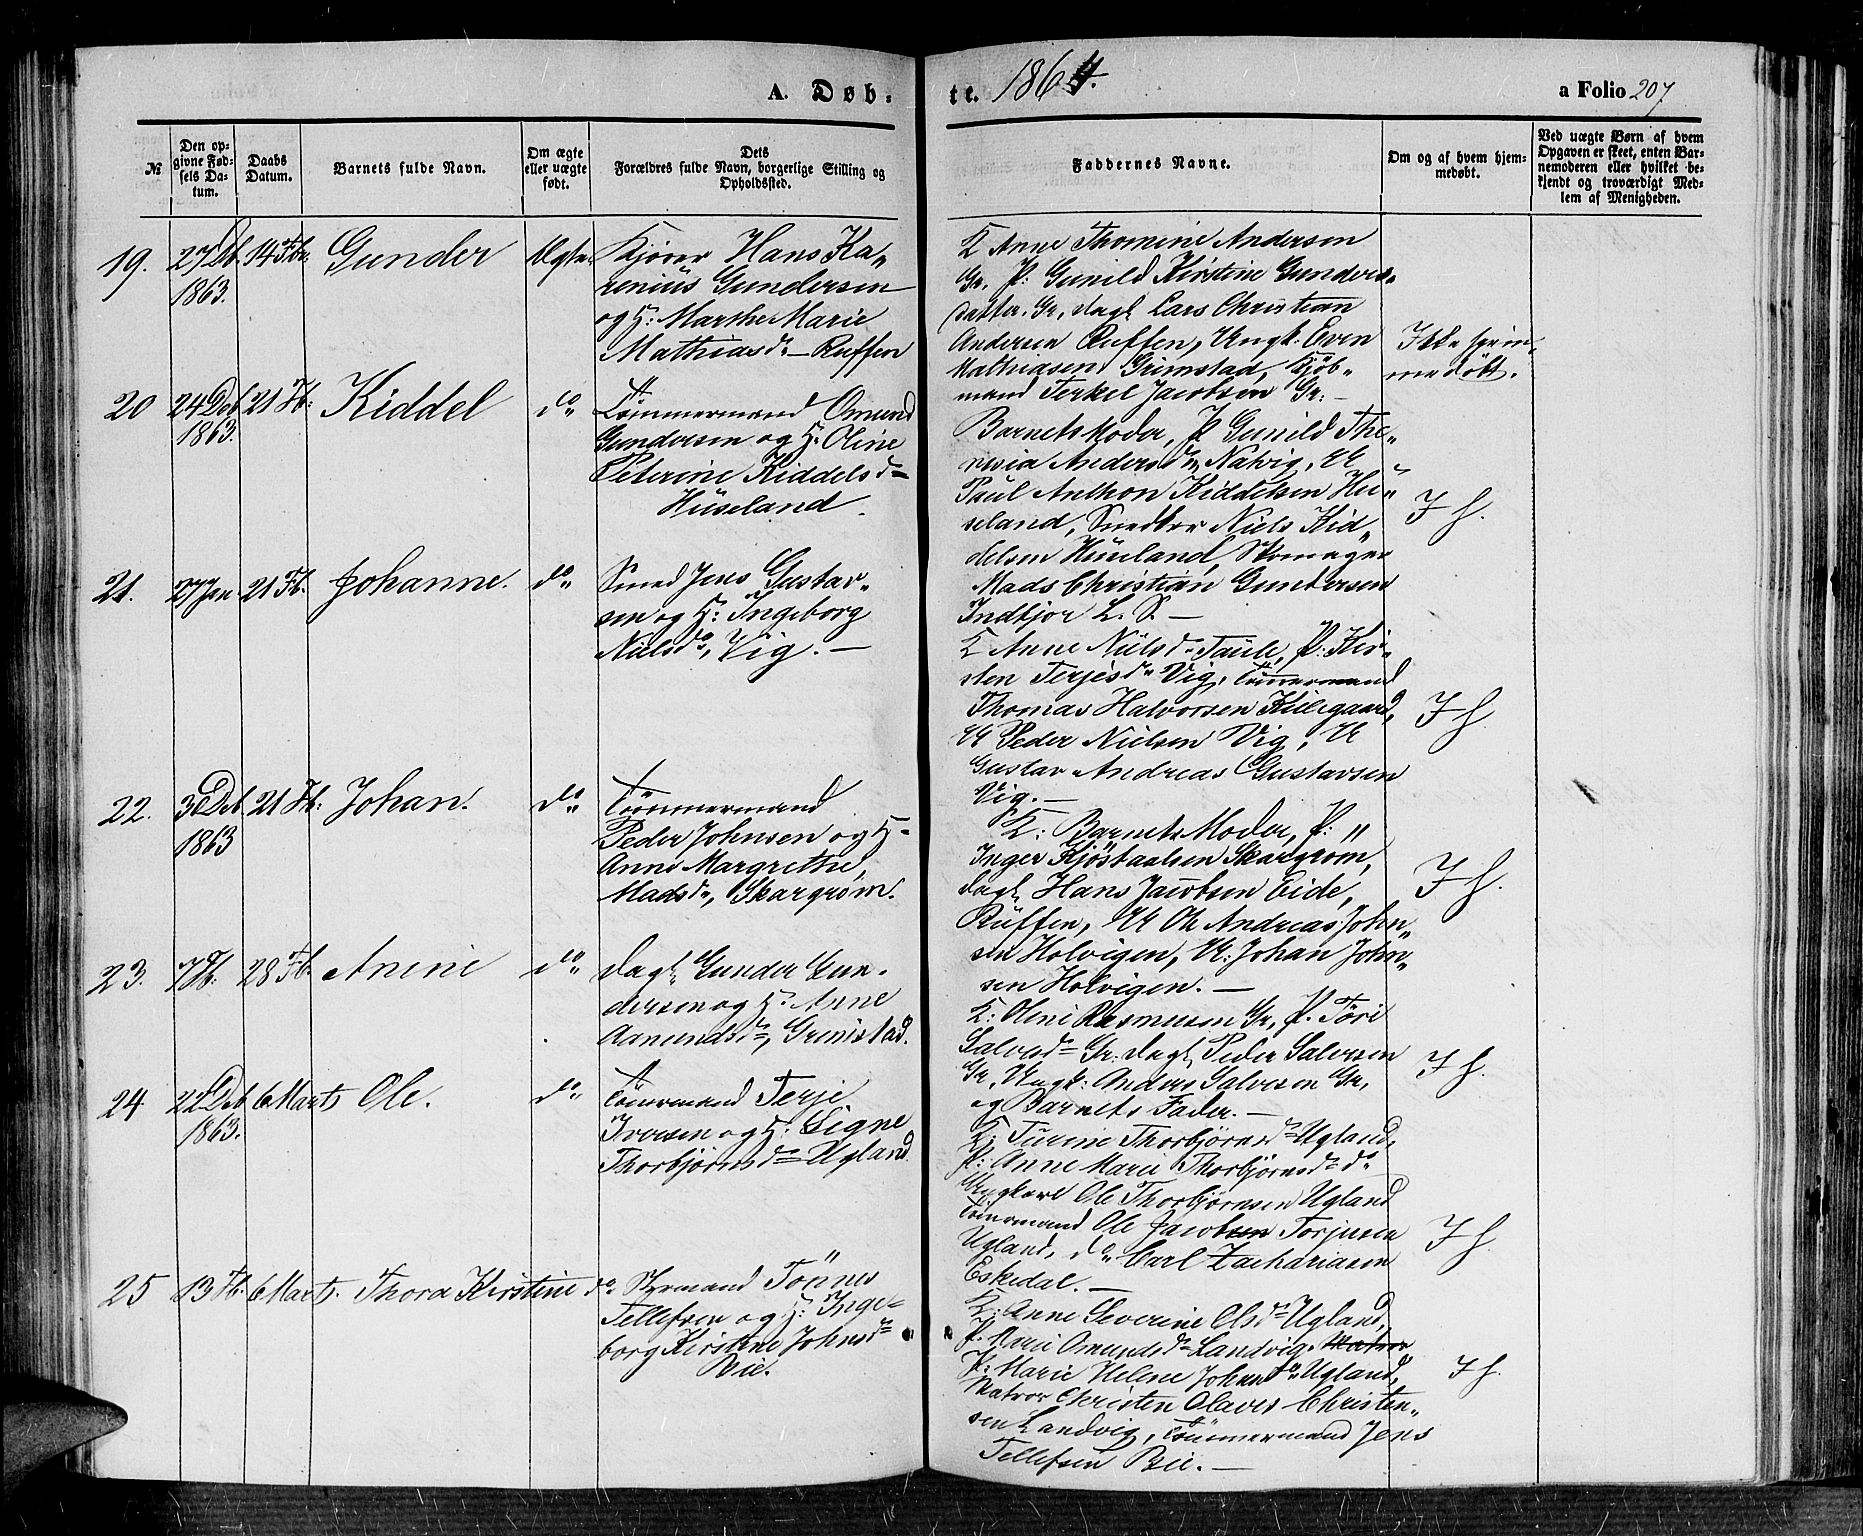 A. Døb-
te. 1864.
a Folio 207
№
Den op-
givne Fød-
sels Da-
tum.
Daabs
Datum.
Barnets fulde Navn.
Om ægte
eller uægte
født.
Dets
Forældres fulde Navn, borgerlige Stilling og
Opholdssted.
Faddernes Navne.
Om og af hvem hjem-
medøbt.
Ved uægte Børn af hvem
Opgaven er skeet, enten Bar-
nemoderen eller hvilket be-
kjendt og troværdigt Med-
lem af Menigheden.
19. 27 Db. 14 Fbr. Gunder Ægte
1863.
Kjører Hans Ka-
renius Gundersen
og H: Marthe Marie
Mathiasdr - Ruffen
K Anne Thomine Andersen
Gr. P: Gunild Kirstine Gunders-
datter. Gr, dagl Lars Christian
Andersen Ruffen, Ungk. Even
Mathiasen Grimstad, Kjøb-
mand Terkel Jacobsen Gr: -
Ikke hjem-
medøbt.
20 24 Deb 21 Fb: Kiddel do
1863.
Tømmermand Omund
Gundersen og H. Oline
Peterine Kiddelsd
Huseland.
Barnets Moder, P Gunild The-
resia Andersdr Natvig, U
Paul Anthon Kiddelsen Hu-
seland, Niels Kid-
delsen Huseland, Skomager
Mads Christian Gundersen
Indtjor L. S. -
I h.
21. 27 Jan 21 Fb. Johanne. do
Smed Jens Gustav-
sen og H: Ingeborg
Nielsdr, Vig. -
K Anne Nielsd Taule, P: Kir-
sten Terjesdr Vig, Tømmermand
Thomas Halvorsen Kilegaard,
U Peder Nielsen Vig, U
Gustav Andreas Gustavsen
Vig. -
I h
22. 30 Deb 21 Fb: Johan. do
1863
Tømmermand
Peder Johnsen og H.
Anne Margrethe
Madsdr, Skargrøm.
K: Barnets Moder, P:
Inger Kjøstaalsen Skargrøm,
dagl Hans Jacobsen Eide,
Ruffen, U Ole Andreas John-
sen Holvigen, U: Johan John-
sen Holvigen. -
I h.
23. 7 Fb: 28 Fb. Anine do
dagl Gunder Gun-
dersen og H. Anne
Aamundsdr, Grimstad.
K: Oline Rasmusen Gr, P. Tøri
Salvesd Gr: dagl Peder Salvesen
Gr, Ungk: Anders Salvesen Gr,
og Barnets Fader. -
I h.
24 22 Deb 6 Marts Ole. do
1863.
Tømrmand Terje
Iversen og H: Signe
Thorbjørnsd Ugland
K. Turine Thorbjørnsd Ugland,
P: Anne Marie Thorbjørnsd do
Ungkarl Ole Thorbjørnsen Ugland
Tømrmand Ole Jacobsen Torjusen
Ugland, do Carl Zachariasen
Eskedal. -
I h.
25 13 Fb. 6 Marts. Thora Kirstine do
Styrmand Tønnes
Tellefsen og H: Inge-
borg Kirstine Johnsd
Bie.
K: Anne Severine Olsd Ugland,
P. Marie Omundsd Landvig, Matros
P: Marie Helene Johansdr Ugland,
Matros Christen Olaves Christen-
sen Landvig, Tømmermand Jens
Tellefsen Bie. -
I h.